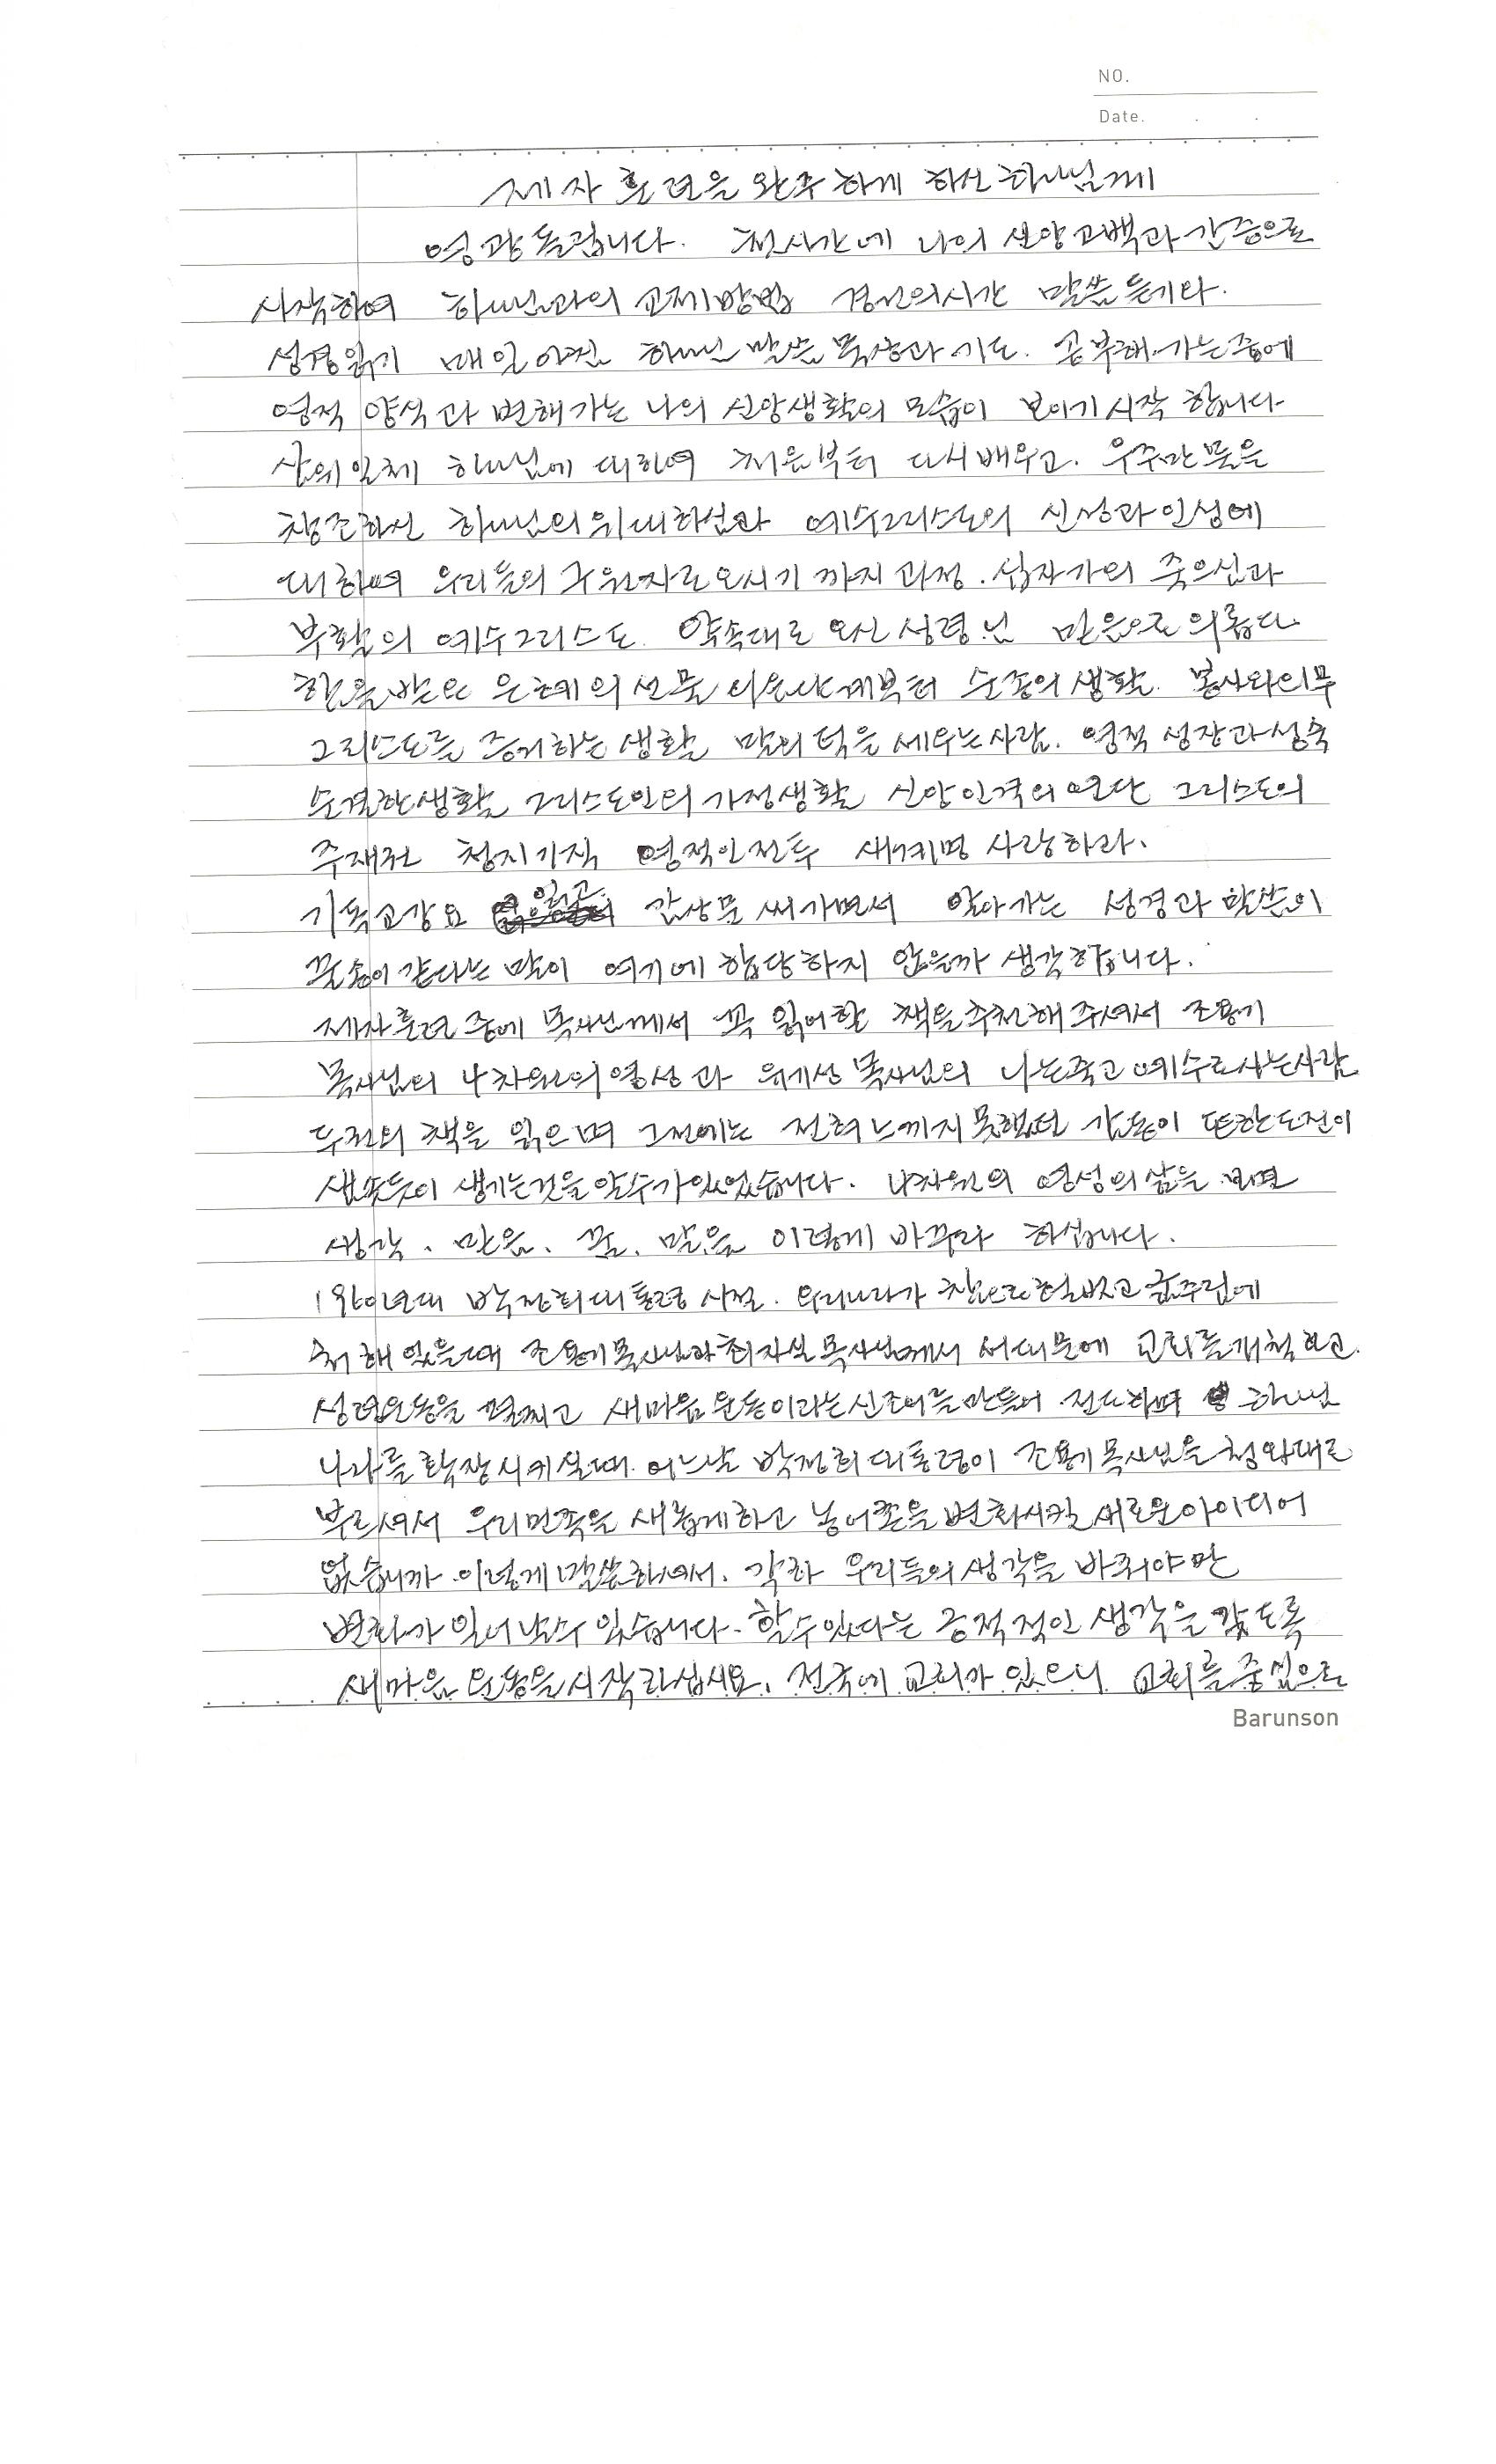 NO.
Date.
제자 훈련을 완주 하게 하신 하나님께
영광 돌립니다. 첫시간에 나의 신앙고백과 간증으로
시작하여 하나님과의 교제방법 경건의시간 말씀 듣기와.
성경읽기 매일 아침 하나님 말씀 묵상과 기도. 공부해 가는중에
영적 양식과 변해가는 나의 신앙생활의 모습이 보이기 시작 합니다
삼위일체 하나님에 대하여 처음부터 다시배우고. 우주만물을
창조하신 하나님의 위대하심과 예수그리스도의 신성과 인성에
대하여 우리들의 구원자로 오시기 까지 과정. 십자가의 죽으심과
부활의 예수그리스도. 약속대로 오신 성령님 믿음으로 의롭다
함을 받은 은혜의 선물 순종의 생활. 봉사와의무
그리스도를 증거하는 생활 말의 덕을 세우는사람. 영적 성장과성숙
순결한생활 그리스도인의 가정생활 신앙인격의 연단 그리스도의
주재권 청지기직 영적인전투 새계명 사랑하라.
기독교강요 읽고 감상문 써가면서 알아가는 성경과 말씀이
꿀송이 같다는 말이 여기에 합당하지 않을까 생각합니다.
제자훈련 중에 목사님께서 꼭 읽어야할 책을추천해 주셔서 조용기
목사님의 4차원의영성 과 유기성 목사님의 나는죽고 예수로사는사람
두권의 책을 읽으며 그전에는 전혀 느끼지 못했던 감동이 또한도전이
샘솟듯이 생기는것을알수가있었습니다. 4차원의 영성의 삶을 보면
생각. 믿음. 꿈. 말을 이렇게 바꾸라 하십니다.
1970년대 박정희대통령 시절. 우리나라가 참으로헐벗고 굶주림에
처해 있을때 조용기목사님과최자실목사님께서 서대문에 교회를개척하고.
성령운동을 펼치고 새마음운동이라는신조어를만들어 전도하며 하나님
나라를 확장시키실때. 어느날 박정희대통령이 조용기목사님을청와대로
부르셔서 우리민족을 새롭게하고 농어촌을변화시킬 새로운아이디어
없습니까 이렇게 말씀하셔서. 각하 우리들의생각을 바꿔야만
변화가 일어날수 있습니다. 할수있다는 긍적적인 생각을 갖도록
새마음 운동을시작하십시요. 전국에 교회가 있으니 교회를중심으로
Barunson